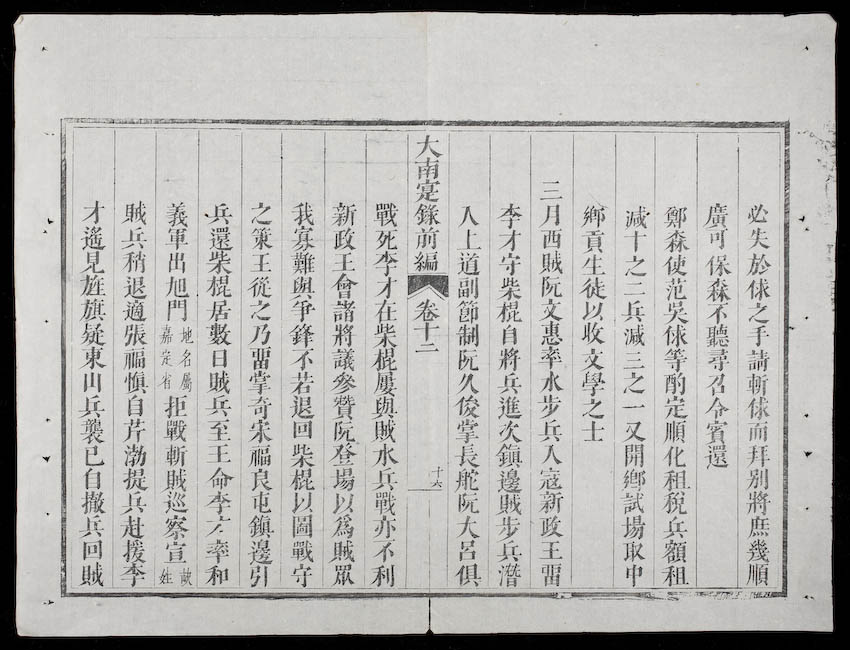 必失於俅之手請斬俅而拜別將庶幾順
廣可保森不聽尋召令賓還
鄭森使范吳俅等酌定順化租稅兵額租
減十之二兵減三之一又開鄉試場取中
鄉貢生徒以收文學之士
三月西賊阮文惠率水步兵入寇新政王畱
李才守柴棍自將兵進次鎮邊賊步兵潛
入上道副節制阮久俊掌長舵阮大呂俱
大南寔錄前編 卷十二 十六
戰死李才在柴棍屢與賊水兵戰亦不利
新政王會諸將議參贊阮登場以爲賊眾
我寡難與争鋒不若退回柴棍以圖戰守
之策王從之乃畱掌奇宋福良屯鎮邊引
兵還柴棍居數日賊兵至王命李才率和
義軍出旭門地名屬嘉定省拒戰斬賊巡察宣缺姓
賊兵稍退適張福慎自芹渤提兵赴援李
才遙見旌旗疑東山兵襲已自撤兵回賊